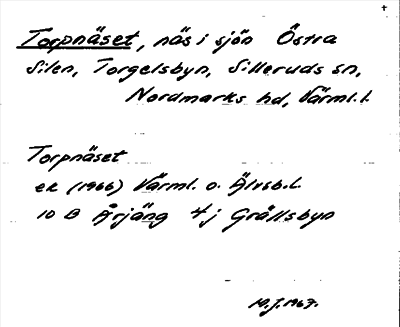 Torpnäset, näs i sjön Östra
Silen, Torgelsbyn, Silleruds sn,
Nordmarks hd, Värml. l.
Torpnäset
ek (1966) Värml. o. Älvsb. l.
10 B Årjäng 4j Grållsbyn
M.J. 1967.